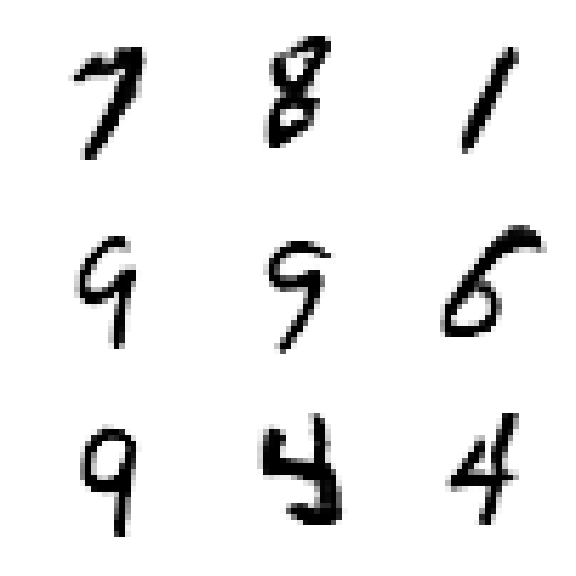 7 8 1
9 9 6
9 4